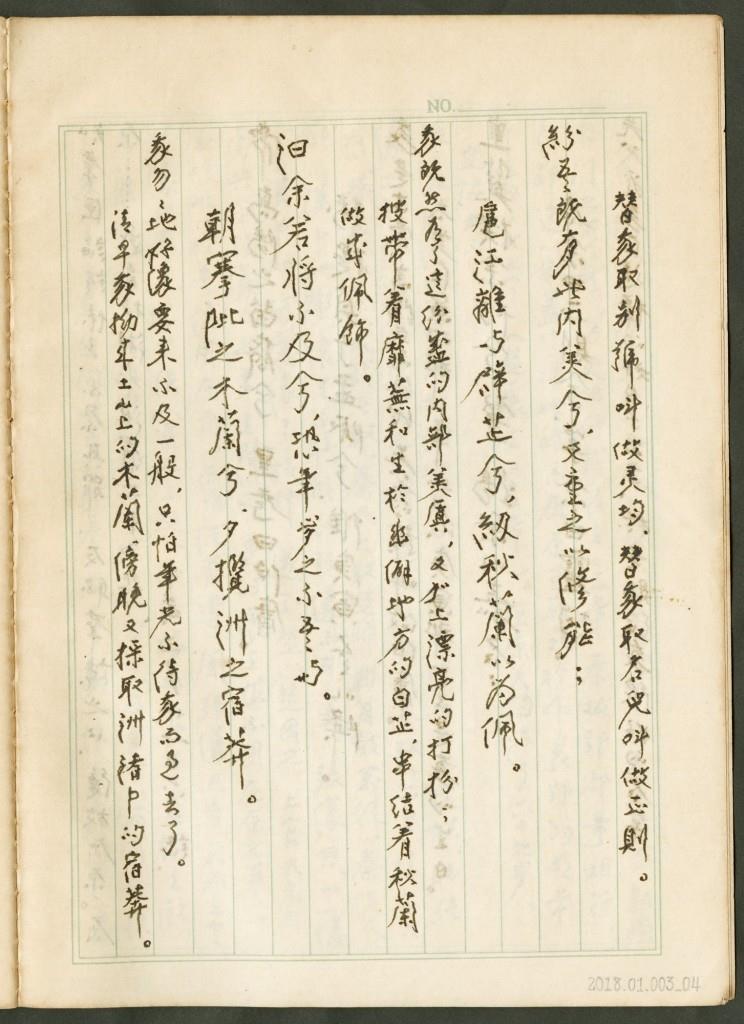 NO.
替我取别號叫做灵均、替我取名兒叫做正則。
紛吾既有此内美兮、又重之以修能；
扈江離与辟芷兮，紉秋蘭以为佩。
我既然有了這纷盛的内部美質，又加上漂亮的打扮；
披带着蘼蕪和生於幽僻地方的白芷、串结着秋蘭
做成佩飾。
汩余若将不及兮，恐年岁之不吾与。
朝搴阰之木蘭兮，夕攬洲之宿莽。
我匆匆地好像要来不及一般，只怕年光不待我而过去了。
清早我拗来土山上的木蘭，傍晚又採取洲渚中的宿莽。
2018.01.003_04